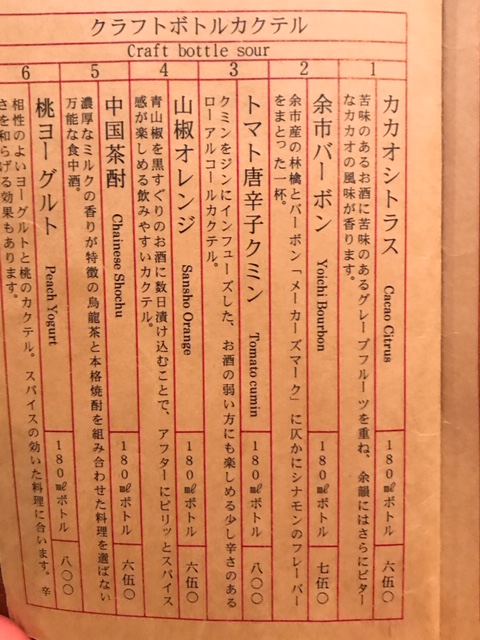 クラフトボトルカクテル
Craft bottle sour
1
カカオシトラス Cacao Citrus 180㎖ボトル 六伍〇
苦味のあるお酒に苦味のあるグレープフルーツを重ね、余韻にはさらにビター
なカカオの風味が香ります。
2
余市バーボン Yoichi Bourbon 180㎖ボトル 七伍〇
余市産の林檎とバーボン「メーカーズマーク」に仄かにシナモンのフレーバー
をまとった一杯。
3
トマト唐辛子クミン Tomato cumin 180㎖ボトル 八〇〇
クミンをジンにインフューズした、お酒の弱い方にも楽しめる少し辛さのある
ローアルコールカクテル。
4
山椒オレンジ Sansho Orange 180㎖ボトル 六伍〇
青山椒を黒すぐりのお酒に数日漬け込むことで、アフターにピリッとスパイス
感が楽しめる飲みやすいカクテル。
5
中国茶酎 Chainese Shochu 180㎖ボトル 六伍〇
濃厚なミルクの香りが特徴の烏龍茶と本格焼酎を組み合わせた料理を選ばない
万能な食中酒。
6
桃ヨーグルト Peach Yogurt 180㎖ボトル 八〇〇
相性のよいヨーグルトと桃のカクテル。スパイスの効いた料理に合います。辛
さを和らげる効果もあります。